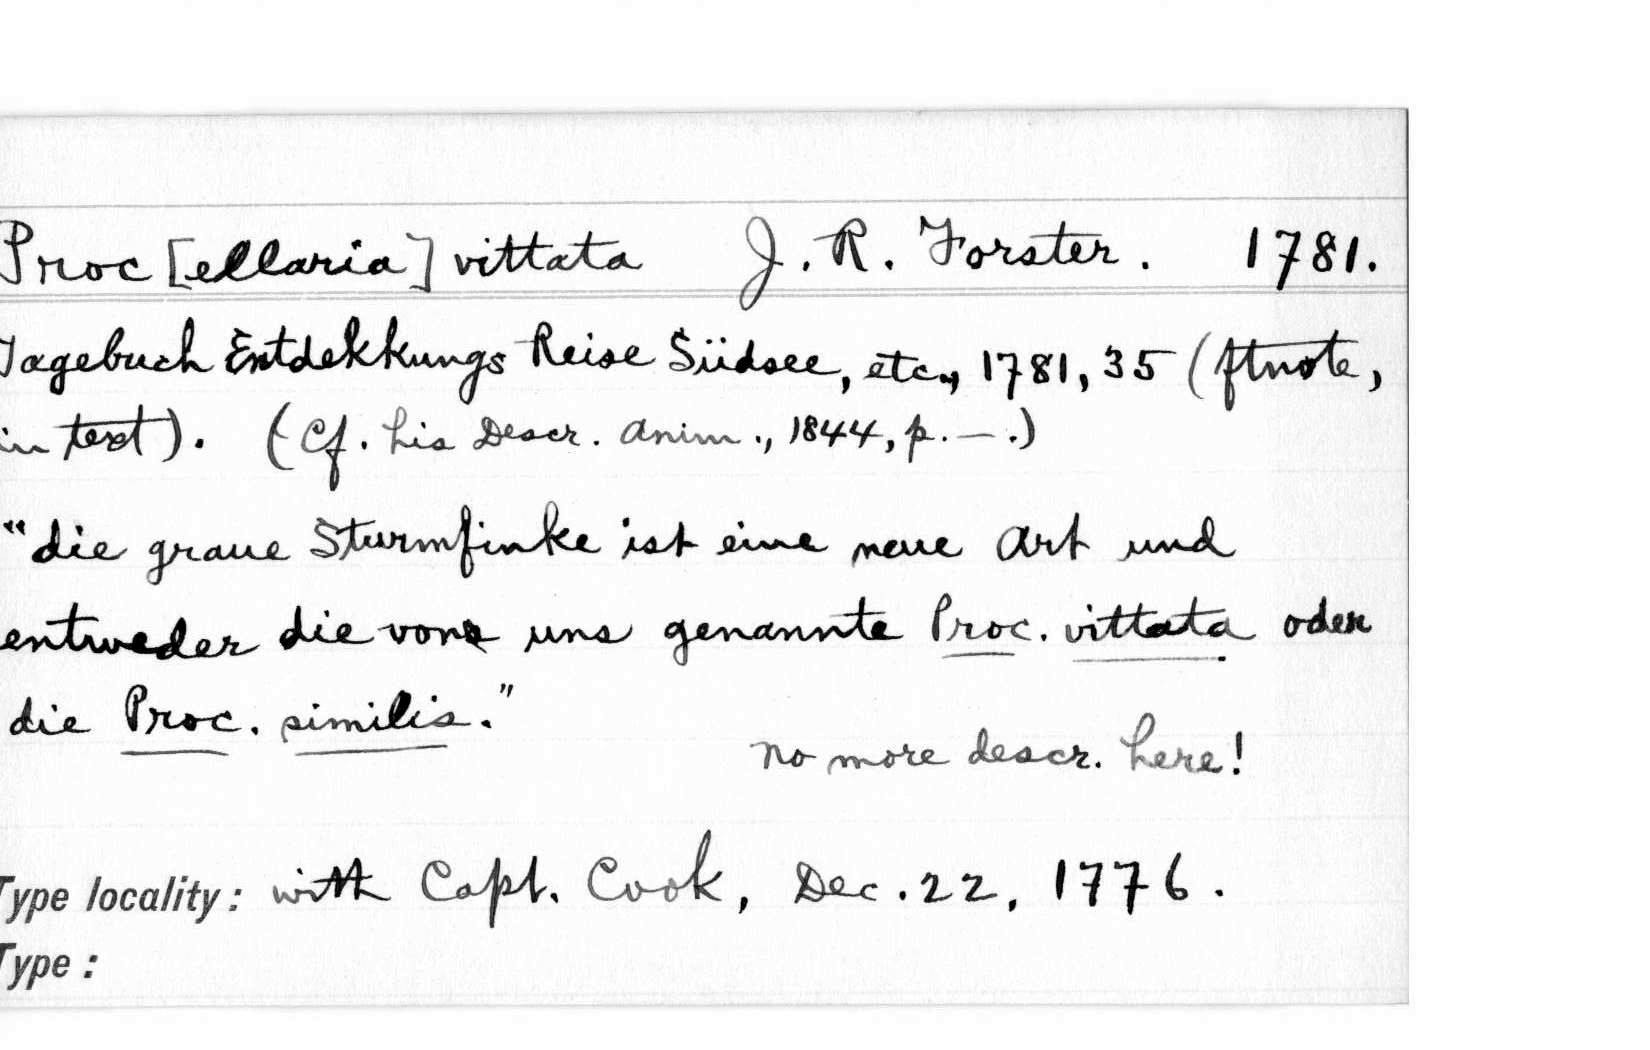 Proc [ellaria] vittata J. R. Forster. 1781.
Tagebuch Entdekkungs Reise Südsee, etc., 1781, 35 (ftnote,
in text). (Cf. his Descr. Anim., 1844, p. —.)
"die graue Sturmfinke ist eine neue Art und
entweder die von uns genannte Proc. vittata oder
die Proc. similis."
No more descr. here!
Type locality: with Capt. Cook, Dec. 22, 1776.
Type: